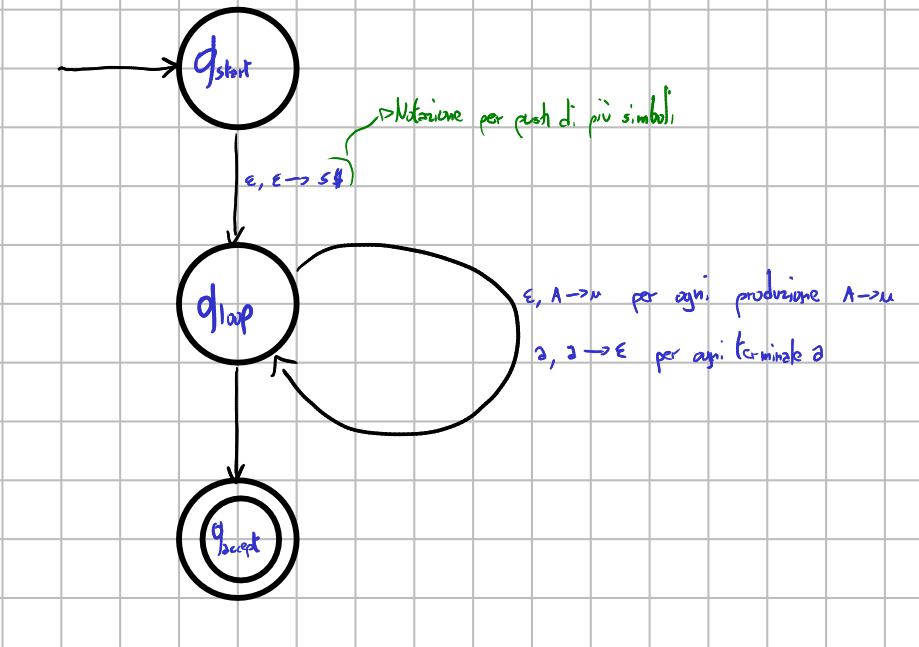 qstart
▷Notazione per push di più simboli
ε, ε → S$
qloop
ε, A→u per ogni produzione A→u
a, a → ε per ogni terminale a
qaccept